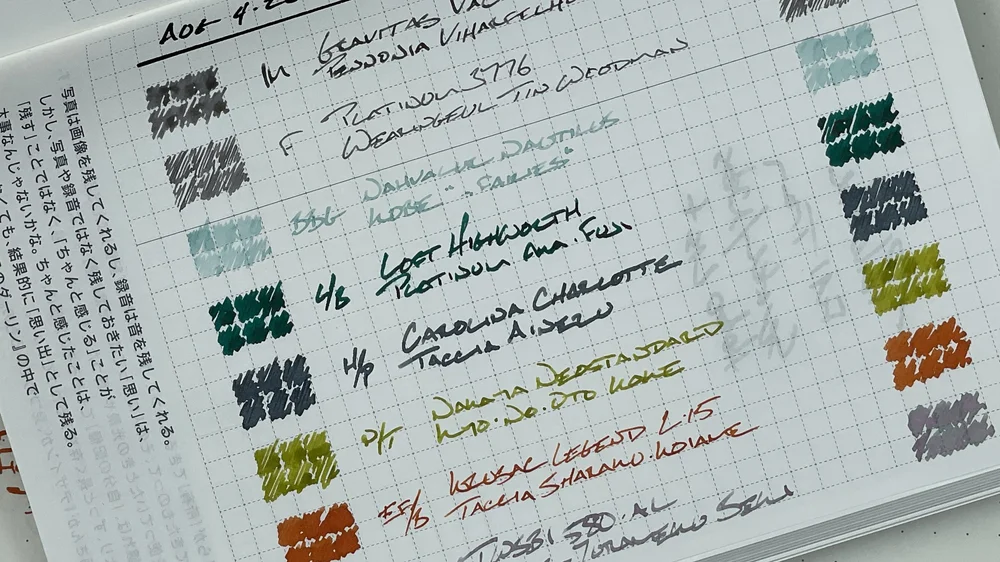 AOE 4·2
M GRAVITAS VAC
PENNONIA
F PLATINUM 3776
WEARINGEUL TIN WOODMAN
BBG NAHVALUR NAUTILUS
KOBE " FAIRIES"
L/B LOFT HIGHWORTH
PLATINUM AMA·FUJI
CAROLINA CHARLOTTE
TACCIA AINEZU
P/T NAKAYA NEOSTANDARD
KYO·NO·OTO KOKE
EF/B KRUSAC LEGEND L·15
TACCIA SHARAKU·
TWSBI 580·AL
写真は画像を残してくれるし、録音は音を残してくれる。
しかし、写真や録音ではなく残しておきたい「思い」は、
「残す」ことではなく、「ちゃんと感じる」ことが
大事なんじゃないかな。ちゃんと感じたことは、
ても、結果的に「思い出」として残る。
のダーリン』の中で